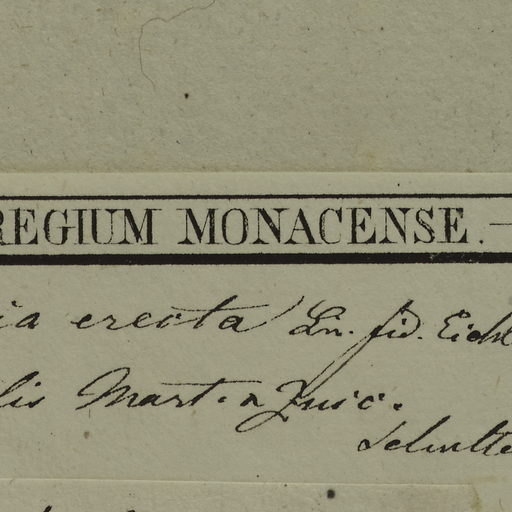 REGIUM MONACENSE. —
ia erecta Ln. fid. Eichl
lis Mart. a Zucc.
Schulte